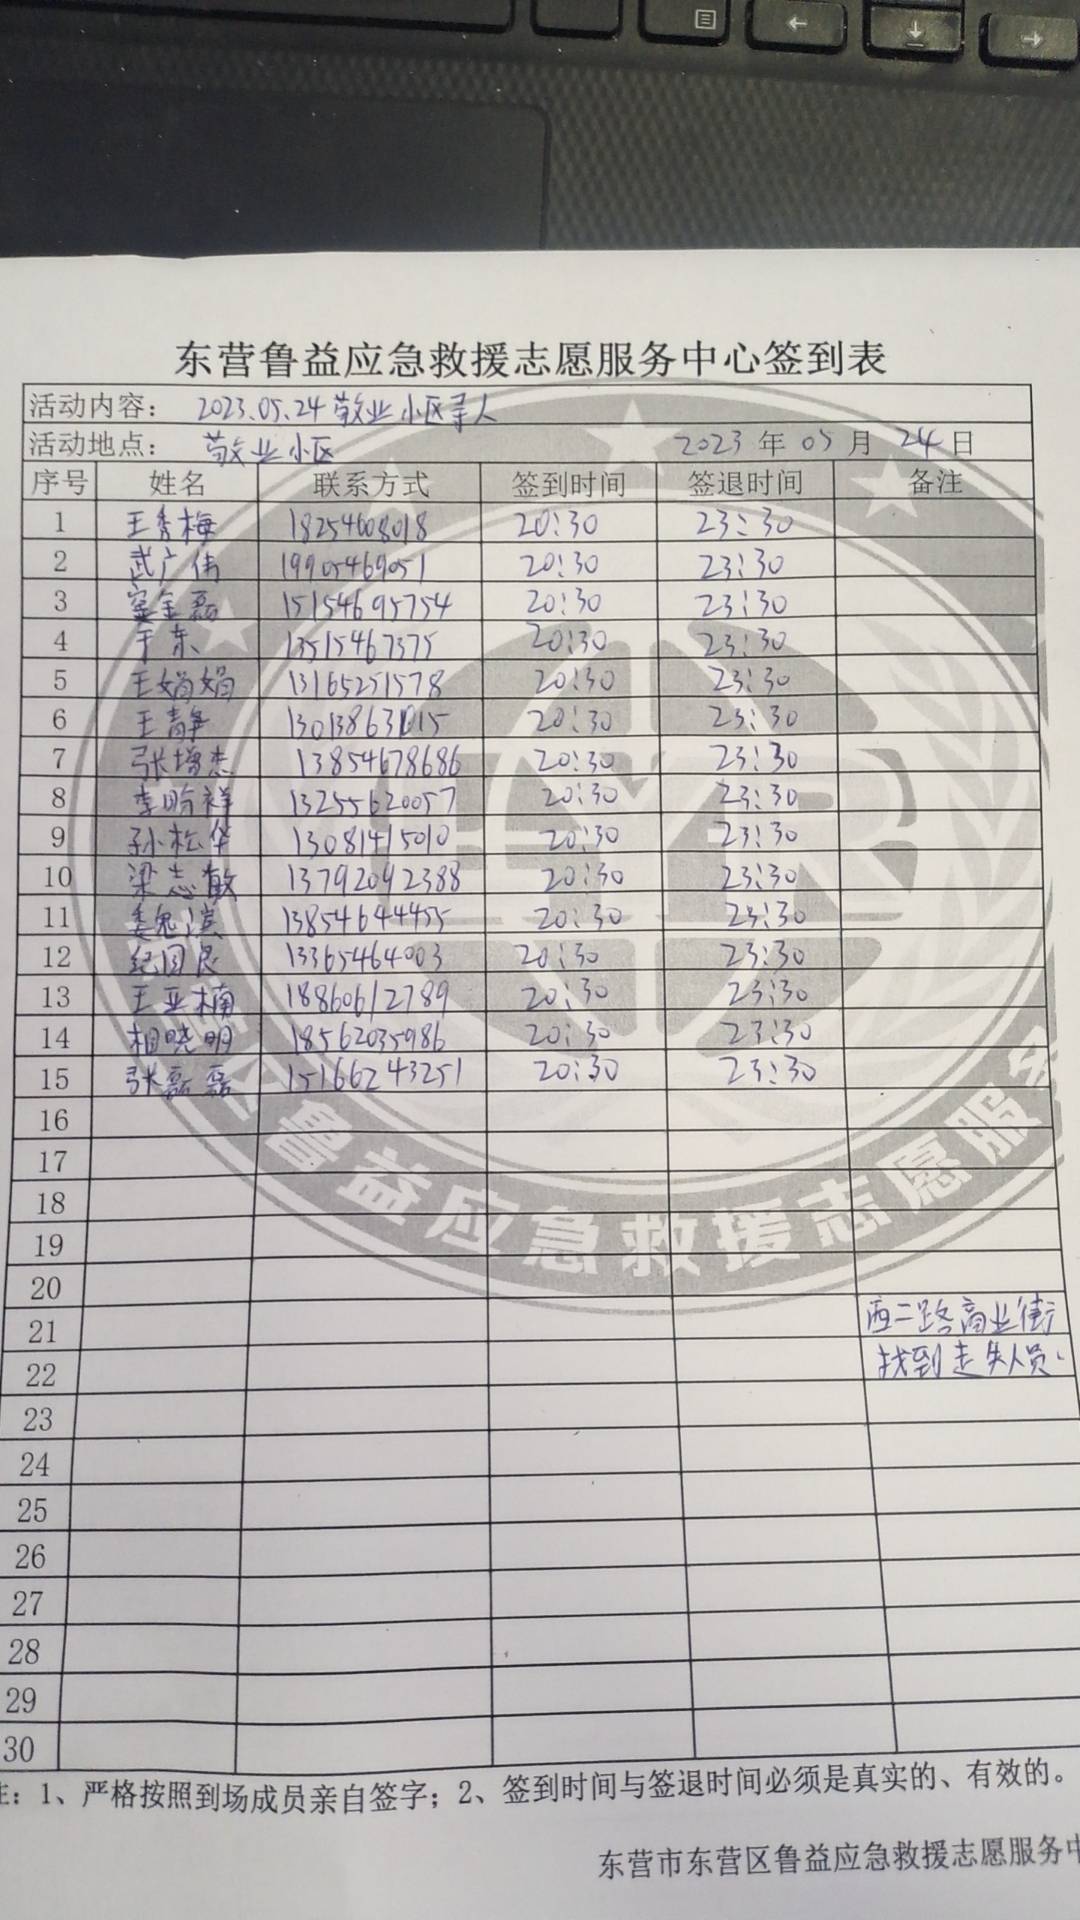 东营鲁益应急救援志愿服务中心签到表
活动内容： 2023.05.24 敬业小区寻人
活动地点： 敬业小区 2023 年 05 月 24 日
序号 姓名 联系方式 签到时间 签退时间 备注
1 王秀梅 18254608018 20:30 23:30
2 武广伟 19905469051 20:30 23:30
3 窦全磊 15154695754 20:30 23:30
4 于东 13515467375 20:30 23:30
5 王娟娟 13165251578 20:30 23:30
6 王静 20:30 23:30
7 张增杰 13854678686 20:30 23:30
8 李昀祥 13255620057 20:30 23:30
9 孙松华 13081415010 20:30 23:30
10 梁志敏 13792092388 20:30 23:30
11 13854644455 20:30 23:30
12 纪国良 13365464003 20:30 23:30
13 王亚楠 18860612789 20:30 23:30
14 相晓明 18562035986 20:30 23:30
15 张磊磊 15166243251 20:30 23:30
16
17
18
19
20
21 西二路商业街
22 找到走失人员
23
24
25
26
27
28
29
30
注：1、严格按照到场成员亲自签字；2、签到时间与签退时间必须是真实的、有效的。
东营市东营区鲁益应急救援志愿服务中
鲁益应急救援志愿服务